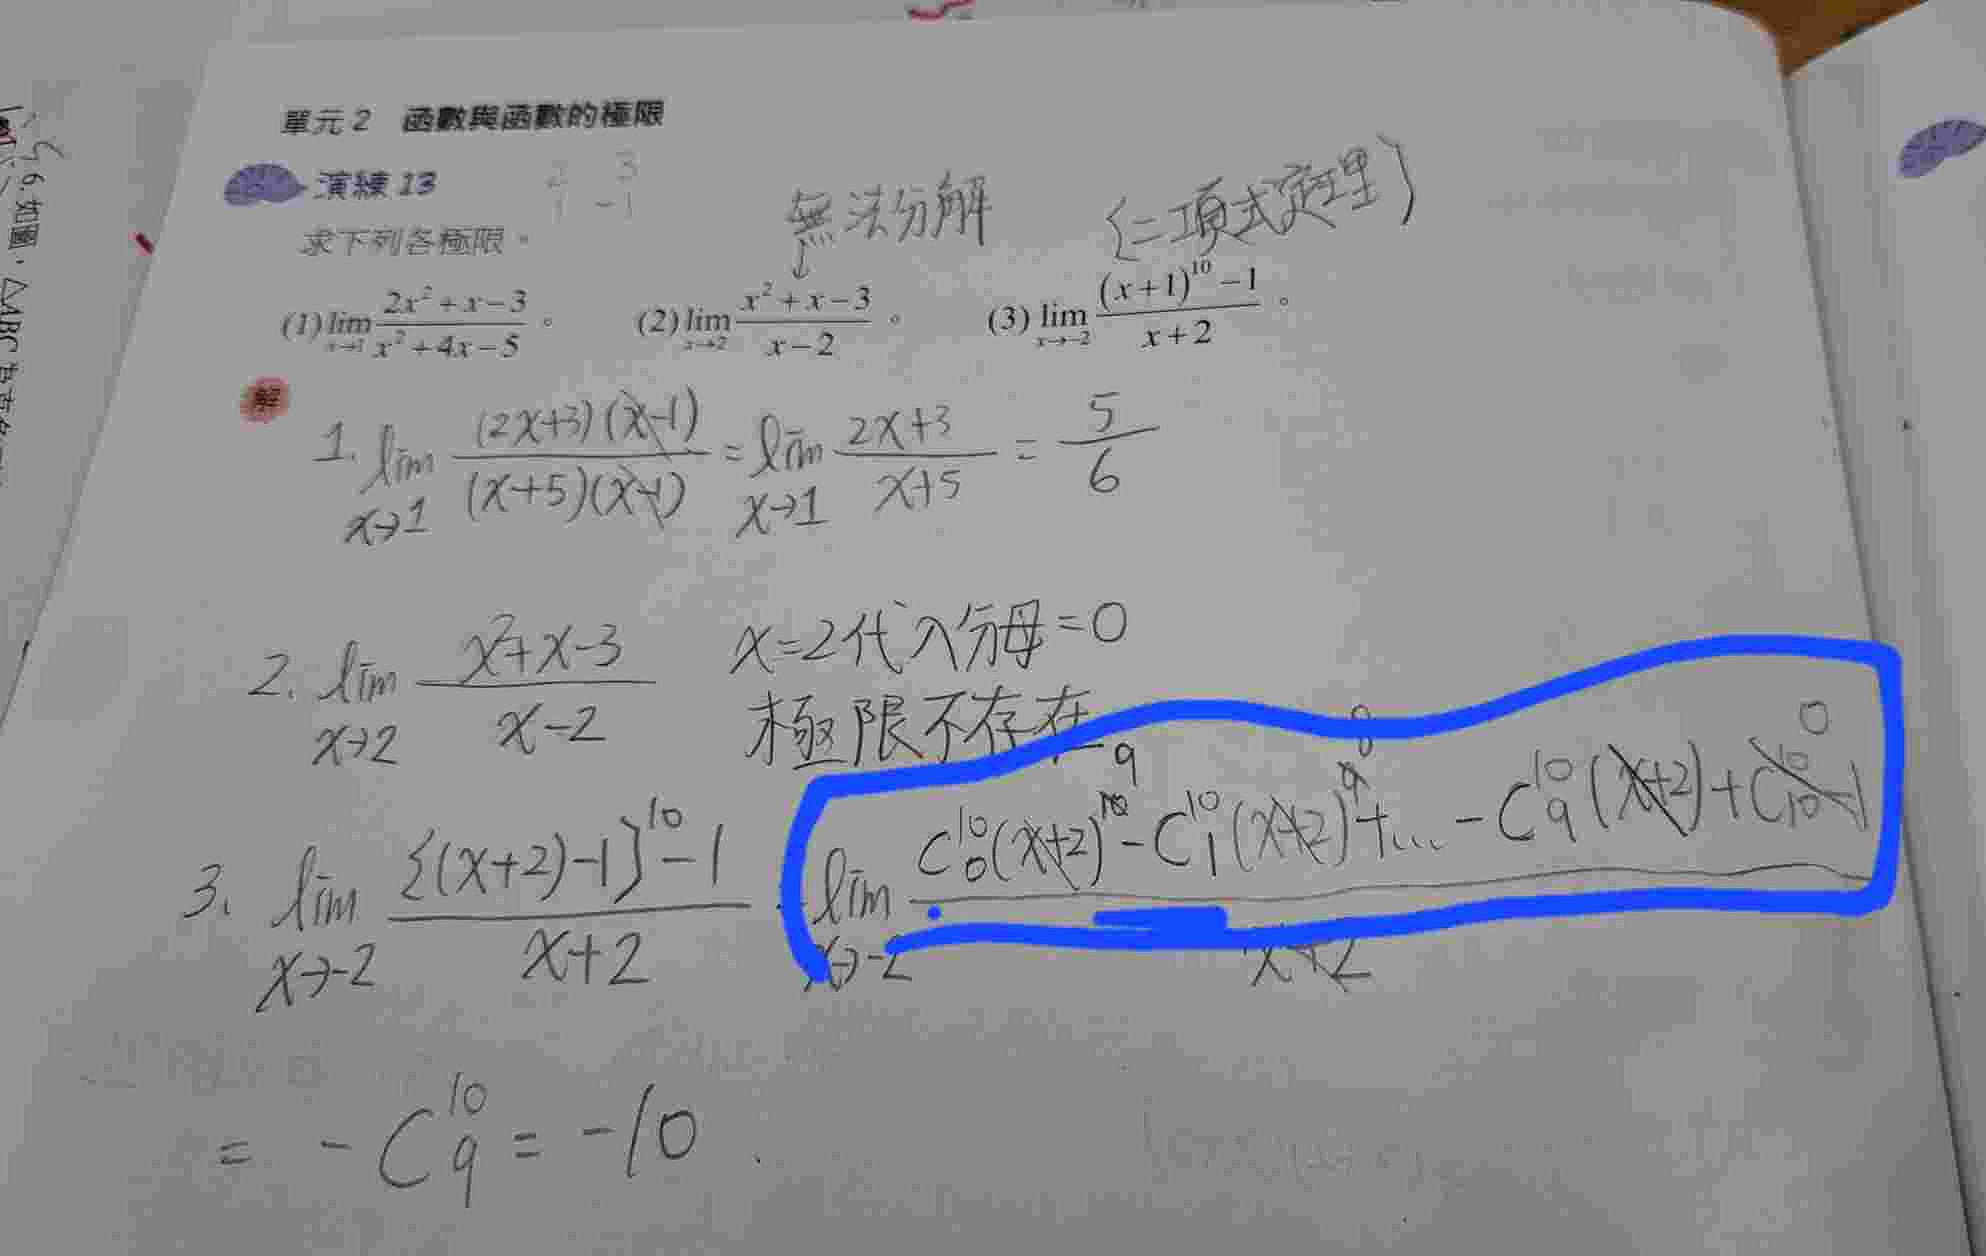 單元 2 函數與函數的極限
演練 13
2 3
1 -1
無法分解
(二項式定理)
求下列各極限。
(1) lim x→1 (2x²+x-3)/(x²+4x-5)。 (2) lim x→2 (x²+x-3)/(x-2)。 (3) lim x→-2 ((x+1)^10-1)/(x+2)。
解
1. lim x→1 (2x+3)(x-1)/(x+5)(x-1) = lim x→1 (2x+3)/(x+5) = 5/6
2. lim x→2 (x²+x-3)/(x-2) x=2代入分母=0
極限不存在
3. lim x→-2 ({(x+2)-1}^10-1)/(x+2) lim x→-2 (C^10_0(x+2)^10 9 - C^10_1(x+2)^9 8 +... - C^10_9(x+2) + C^10_10 -1 0)/(x+2)
= -C^10_9 = -10
6. 如圖，△ABC